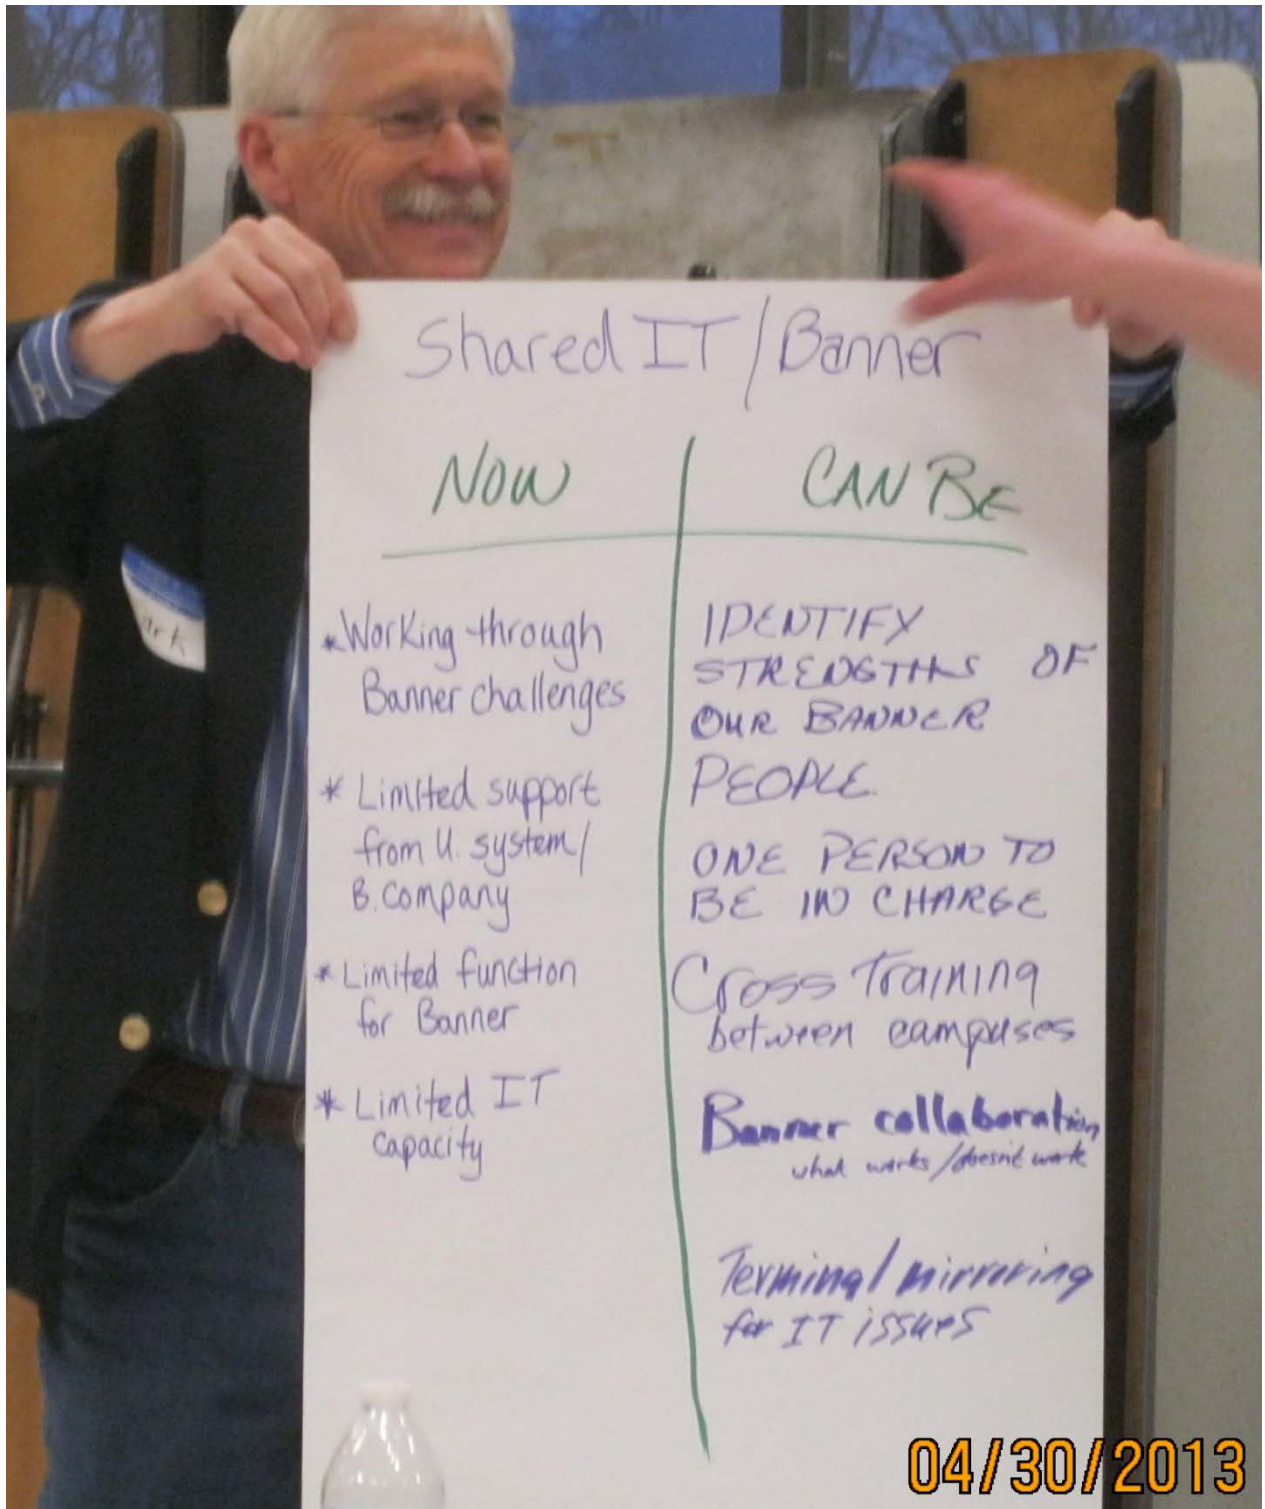 Shared IT / Banner
NOW
CAN BE
* Working through
Banner challenges
* Limited support
from U. system /
B. Company
* Limited function
for Banner
* Limited IT
capacity
IDENTIFY
STRENGTHS OF
OUR BANNER
PEOPLE.
ONE PERSON TO
BE IN CHARGE
Cross Training
between campuses
Banner collaboration
what works / doesn't work
Terminal mirroring
for IT issues
04/30/2013